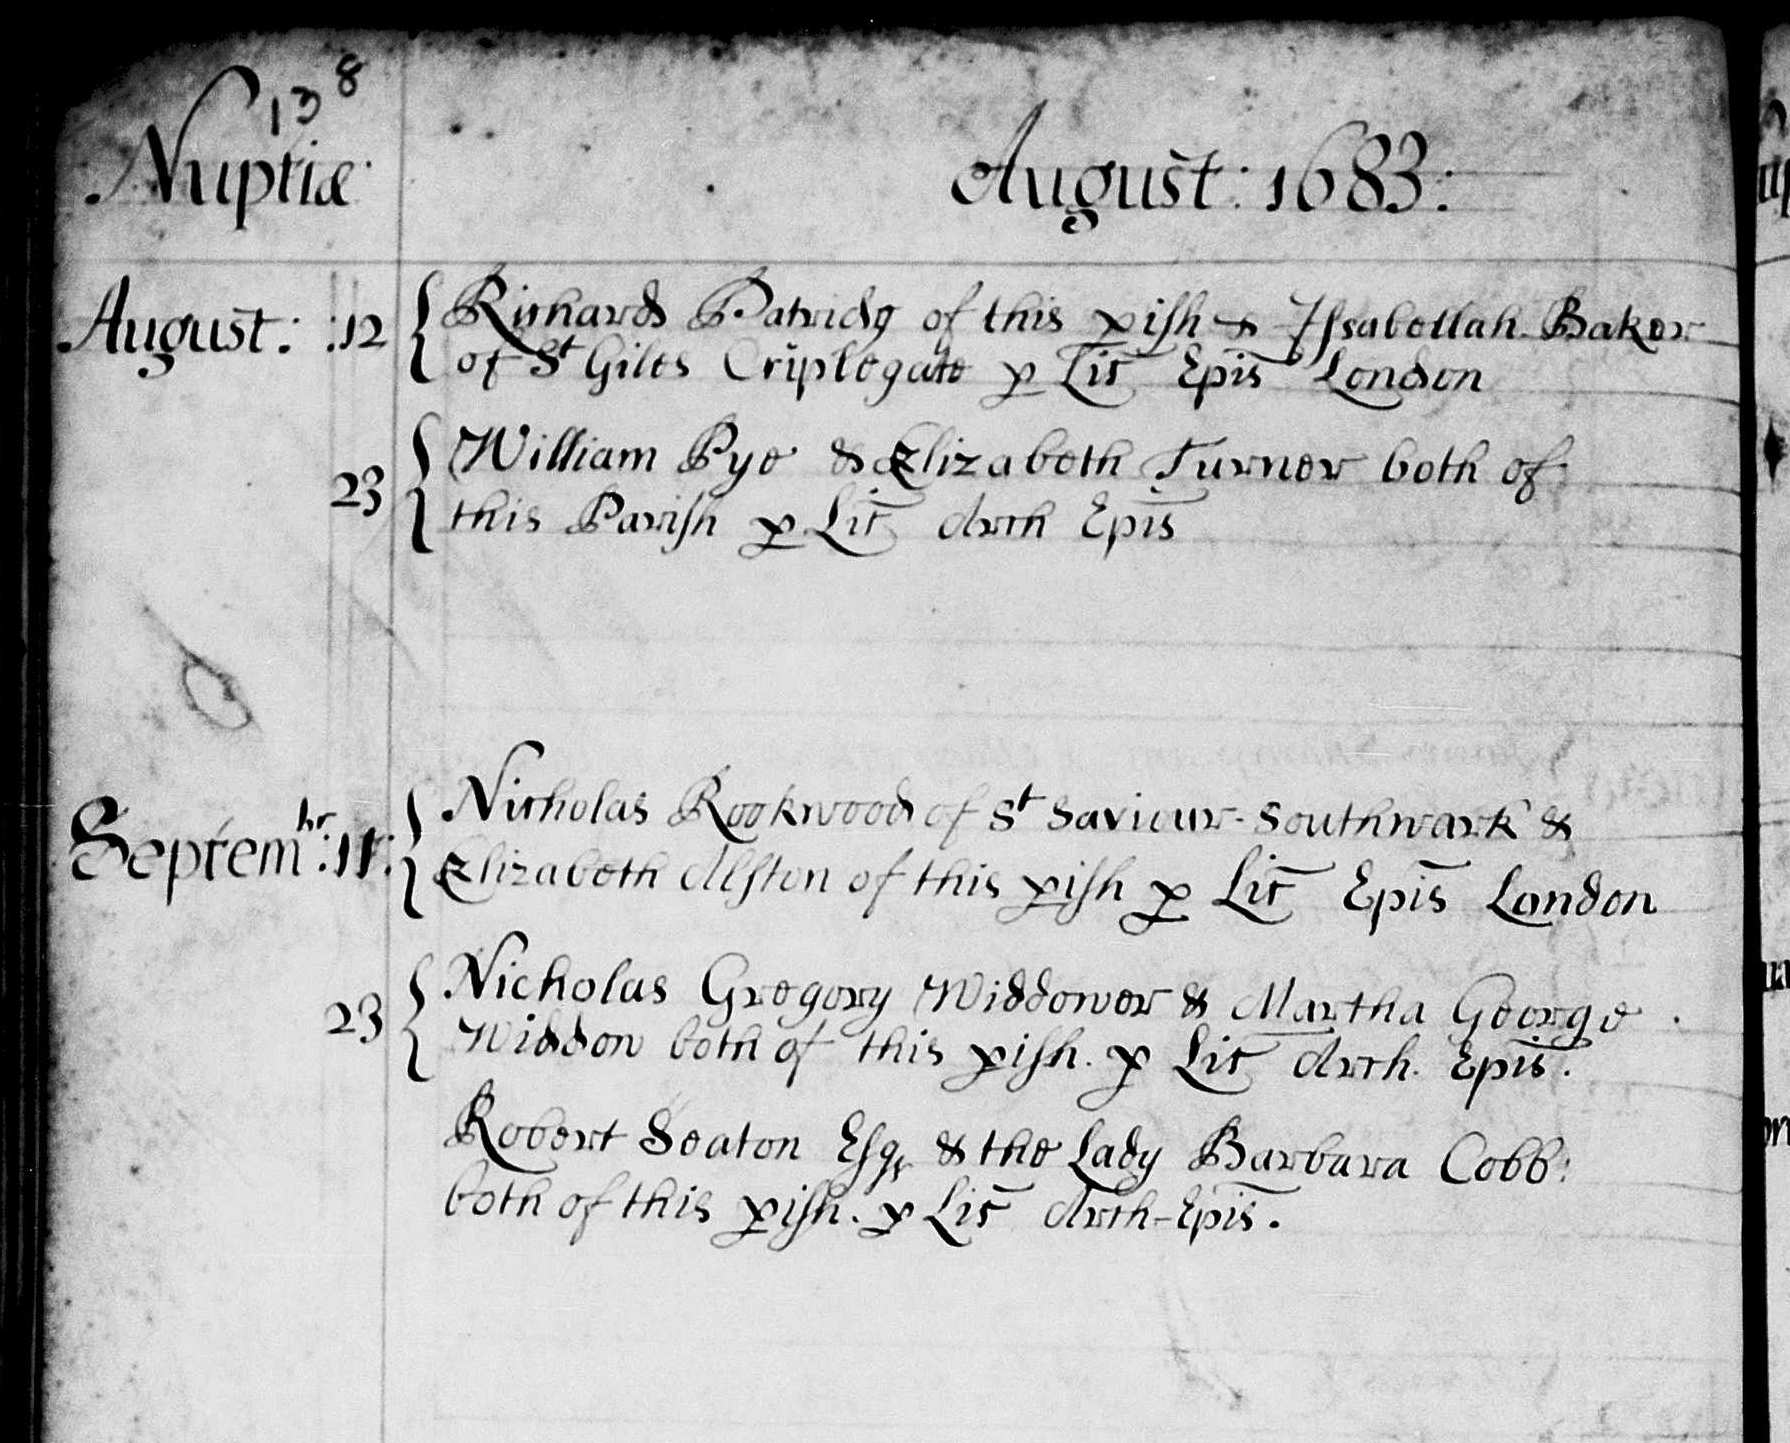 138
Nuptiæ August: 1683:
August: :12 Richard Patridg of this pish & Isabellah Baker
of St Giles Criplegate p Lic Epis London
23 William Pye & Elizabeth Turner both of
this Parish p Lic Arch Epis
Septemhr: 11: Nicholas Rookwood of St Saviour Southwark &
Elizabeth Alston of this pish p Lic Epis London
23 Nicholas Gregory Widdower & Martha George
Widdow both of this pish. p Lic Arch. Epis.
Robert Seaton Esqr & the Lady Barbara Cobb:
both of this pish. p Lic Arch-Epis.